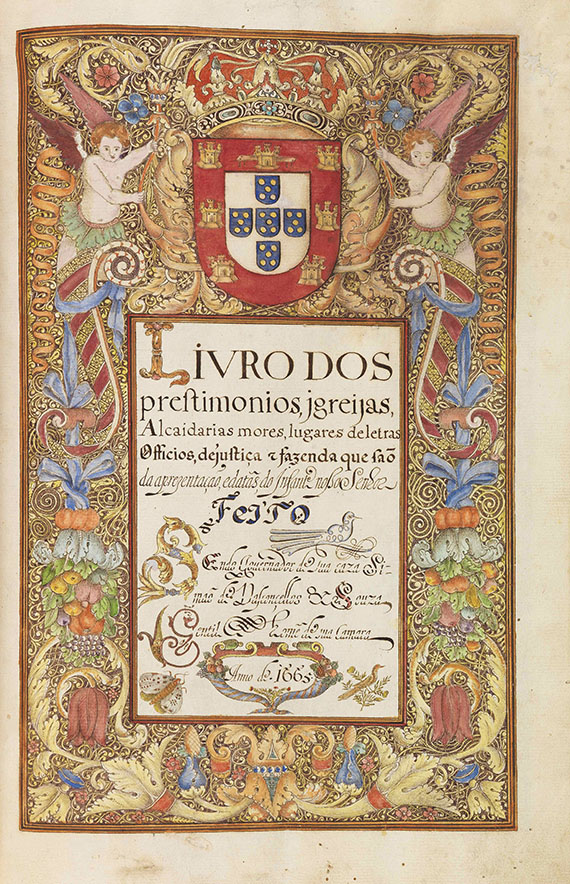 LIVRO DOS
prestimonios, jgreijas,
Alcaidarias mores, lugares de letras
Officios, dejustiça & fazenda que saõ
da apresentaçaõ, e datas do Infante nosso Senhor
de FEITO
SEndo Governador de sua caza Si-
mão de Vasconcellos & Souza
Gentil Home de sua Camara
Anno de 1665